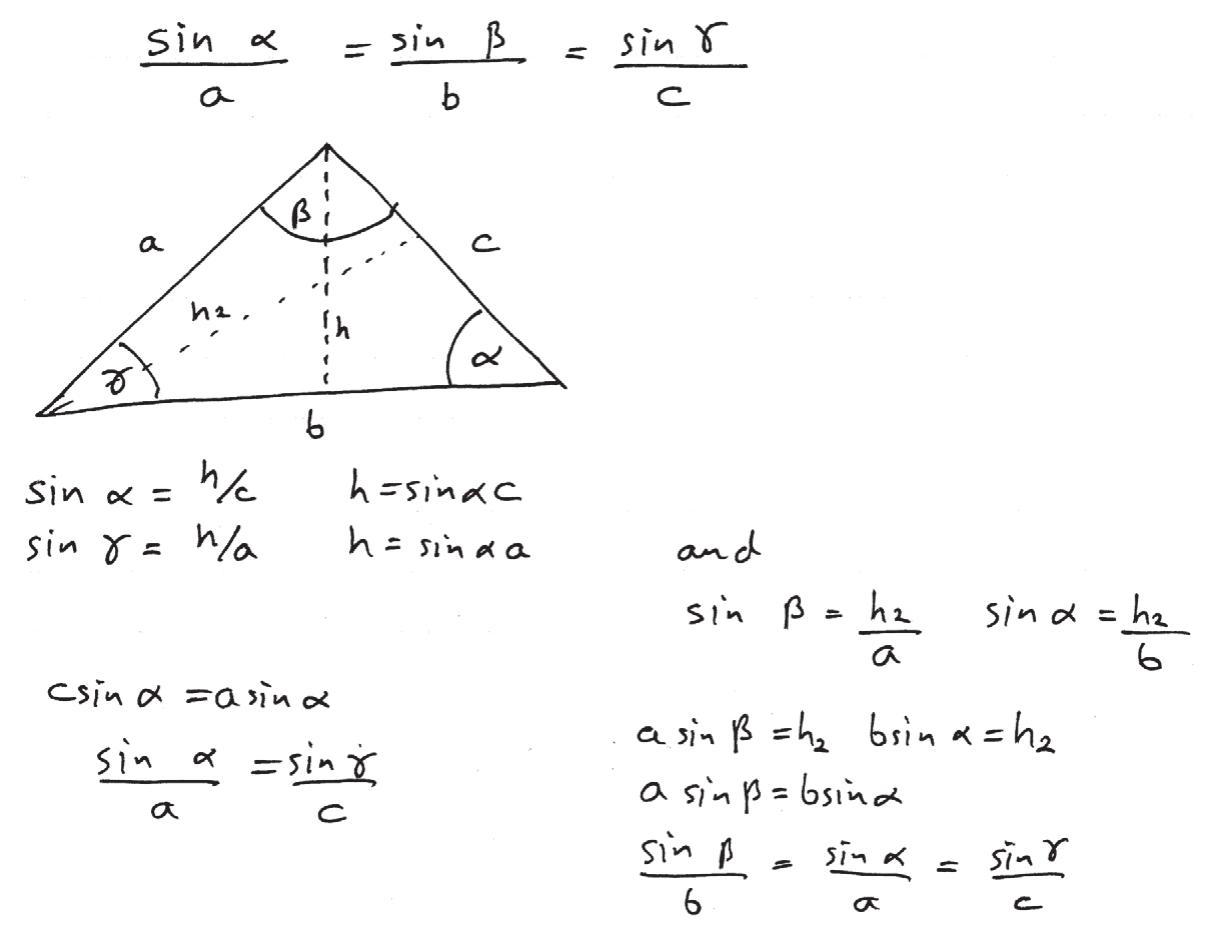 sin α / a = sin β / b = sin γ / c
β
a
c
h2
h
γ
α
b
sin α = h/c h = sin α c
sin γ = h/a h = sin α a
c sin α = a sin α
sin α / a = sin γ / c
and
sin β = h2 / a sin α = h2 / b
a sin β = h2 b sin α = h2
a sin β = b sin α
sin β / b = sin α / a = sin γ / c